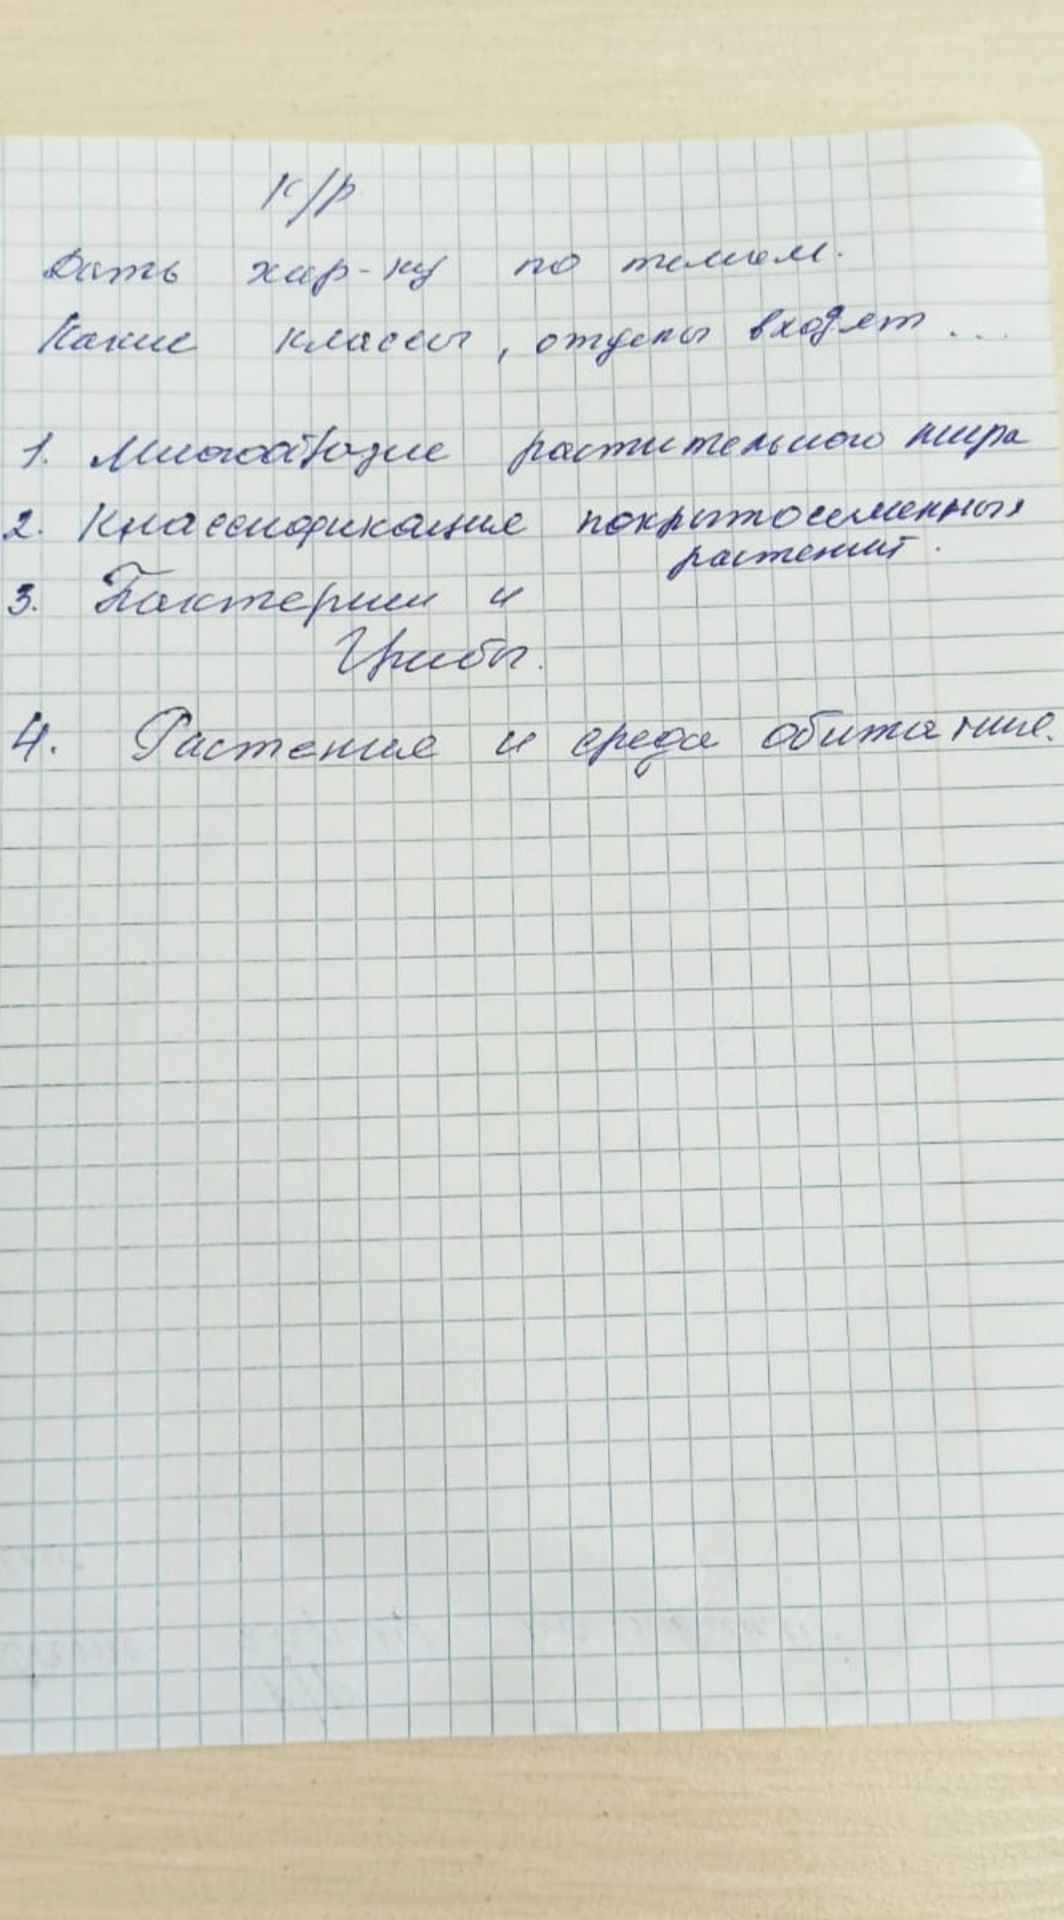 К/р
Дать хар-ку по темам.
Какие классы, отделы входят...
1. Многообразие растительного мира
2. Классификация покрытосеменных
растений.
3. Бактерии и
Грибы.
4. Растения и среда обитания.